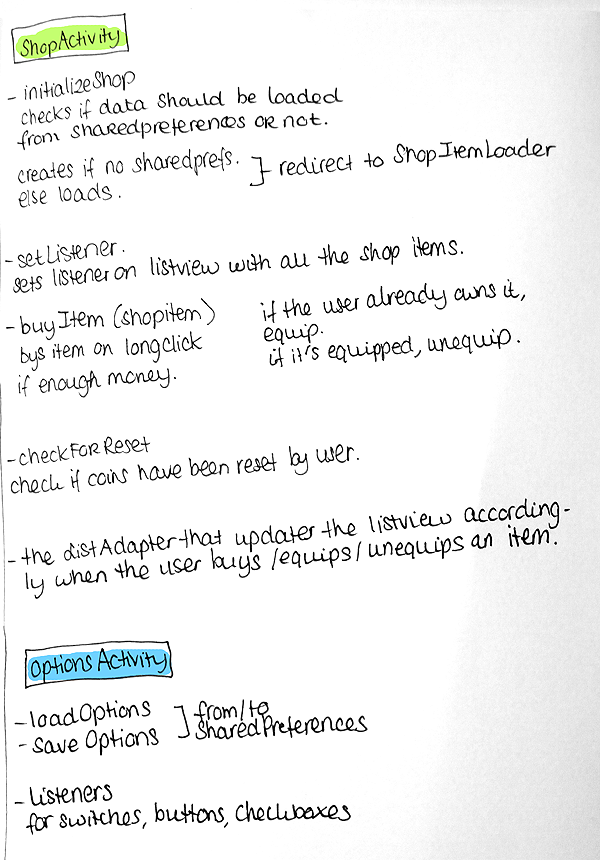 ShopActivity
- initializeShop
checks if data should be loaded
from sharedpreferences or not.
creates if no sharedprefs. } redirect to ShopItemLoader
else loads.
- setListener.
sets listener on listview with all the shop items.
- buyItem (shopitem)
bys item on longclick
if enough money.
if the user already owns it,
equip.
if it's equipped, unequip.
- checkForReset
check if coins have been reset by user.
- the distAdapter that updater the listview according-
ly when the user buys / equips / unequips an item.
Options Activity
- loadOptions } from / to
- save Options SharedPreferences
- Listeners
for switches, buttons, checkboxes